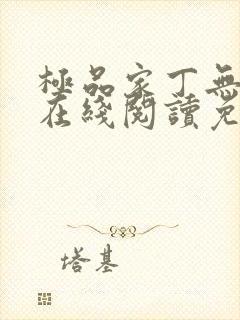 極品家丁無
在綫閱讀免
塔基